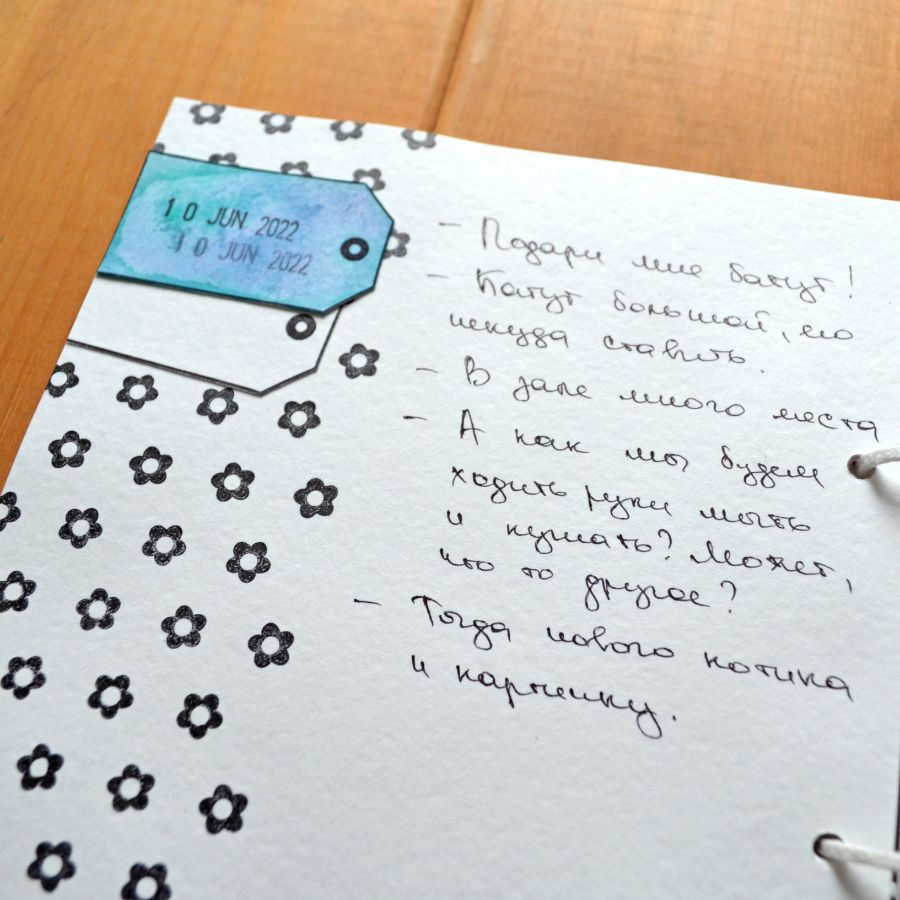 10 JUN 2022
10 JUN 2022
- Подари мне батут!
- Батут большой, его
некуда ставить.
- В зале много места
- А как мы будем
ходить руки мыть
и кушать? Может,
что то другое?
- Тогда нового котика
и картинку.